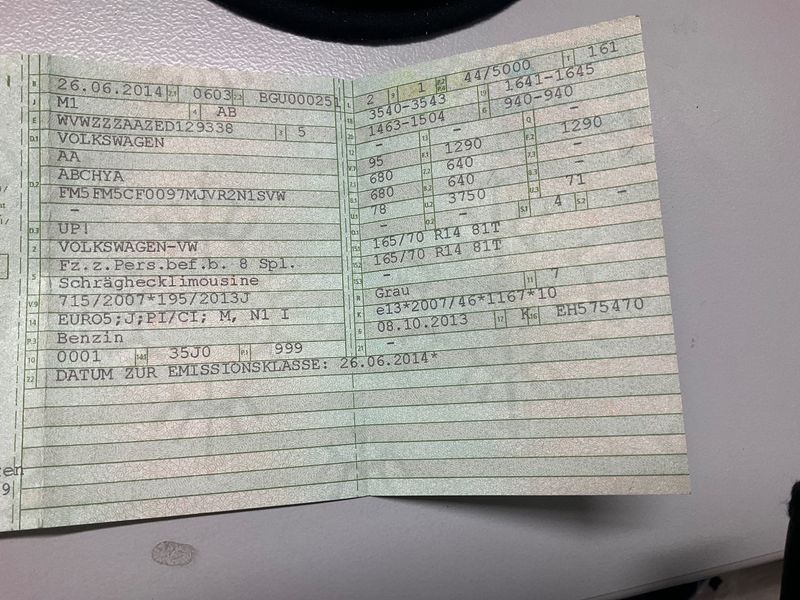 B 26.06.2014 2.1 0603 2.2 BGU00025
J M1 4 AB
E WVWZZZAAZED129338 3 5
D.1 VOLKSWAGEN
AA
D.2 ABCHYA
FM5FM5CF0097MJVR2N1SVW
-
D.3 UP!
2 VOLKSWAGEN-VW
Fz.z.Pers.bef.b. 8 Spl.
5 Schräghecklimousine
V.9 715/2007*195/2013J
14 EURO5;J;PI/CI; M, N1 I
P.3 Benzin
10 0001 14.1 35J0 P.1 999
22 DATUM ZUR EMISSIONSKLASSE: 26.06.2014*
L 2 9 1 P.2/P.4 44/5000 T 161
18 3540-3543 19 1641-1645
20 1463-1504 G 940-940
- 13 - Q -
95 F.1 1290 F.2 1290
680 640 -
680 640 -
78 3750 71
- O.2 - S.1 4 S.2 -
15.1 165/70 R14 81T
165/70 R14 81T
15.3 -
R Grau 11 7
K e13*2007/46*1167*10
6 08.10.2013 17 K 16 EH575470
21 -
en
9